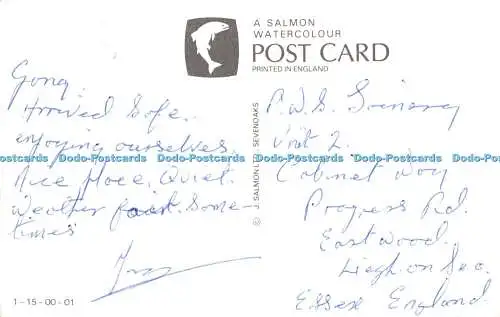 A SALMON
WATERCOLOUR
POST CARD
PRINTED IN ENGLAND
Arrived Safe.
enjoying ourselves.
Nice Place, Quiet.
Weather fair. Some-
times
© J. SALMON LTD., SEVENOAKS
Unit 2.
Cabinet Way
Progress Rd.
Eastwood.
Leigh on Sea.
Essex England.
Dodo-Postcards Dodo-Postcards Dodo-Postcards Dodo-Postcards Dodo-Postcards
1-15-00-01